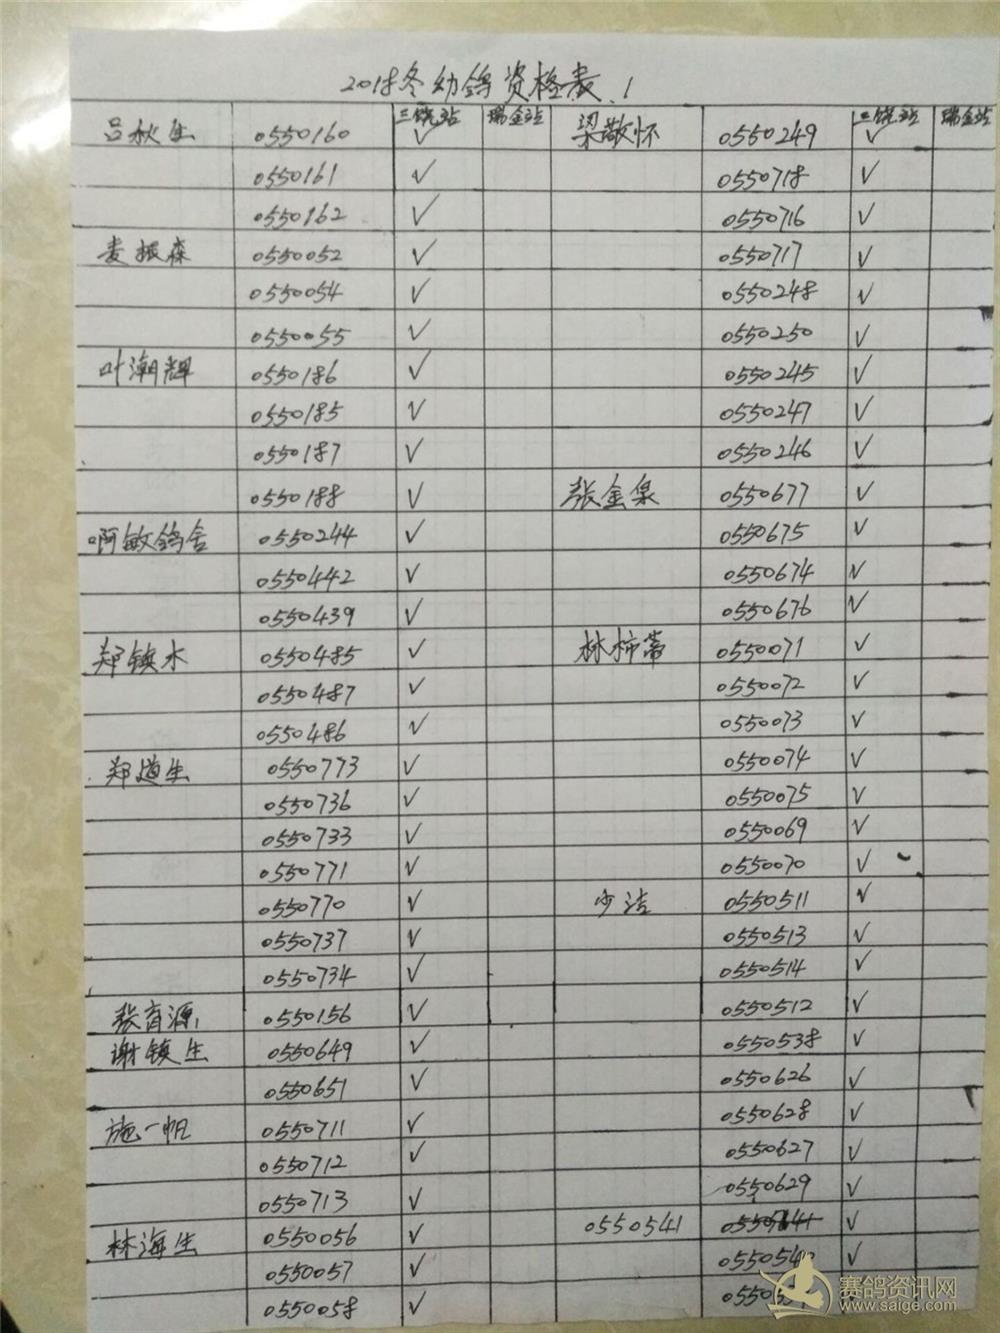 2018冬幼鸽资格表.1
三饶站 瑞金站 三饶站 瑞金站
吕秋生 0550160 ✓ 梁敬怀 0550249 ✓
0550161 ✓ 0550718 ✓
0550162 ✓ 0550716 ✓
麦振森 0550052 ✓ 0550717 ✓
0550054 ✓ 0550248 ✓
0550055 ✓ 0550250 ✓
叶潮辉 0550186 ✓ 0550245 ✓
0550185 ✓ 0550247 ✓
0550187 ✓ 0550246 ✓
0550188 ✓ 张金泉 0550677 ✓
啊敏鸽舍 0550244 ✓ 0550675 ✓
0550442 ✓ 0550674 ✓
0550439 ✓ 0550676 ✓
郑镇木 0550485 ✓ 林柿蒂 0550071 ✓
0550487 ✓ 0550072 ✓
0550486 ✓ 0550073 ✓
郑道生 0550773 ✓ 0550074 ✓
0550736 ✓ 0550075 ✓
0550733 ✓ 0550069 ✓
0550771 ✓ 0550070 ✓
0550770 ✓ 少洁 0550511 ✓
0550737 ✓ 0550513 ✓
0550734 ✓ 0550514 ✓
张育源 0550156 ✓ 0550512 ✓
谢镇生 0550649 ✓ 0550538 ✓
0550651 ✓ 0550626 ✓
施一帆 0550711 ✓ 0550628 ✓
0550712 ✓ 0550627 ✓
0550713 ✓ 0550629 ✓
林海生 0550056 ✓ 0550541 ✓
0550057 ✓ ✓
0550058 ✓
赛鸽资讯网
www.saige.com